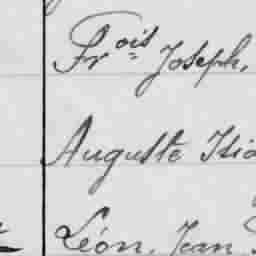 Frois Joseph,
Auguste Isid
Léon, Jean